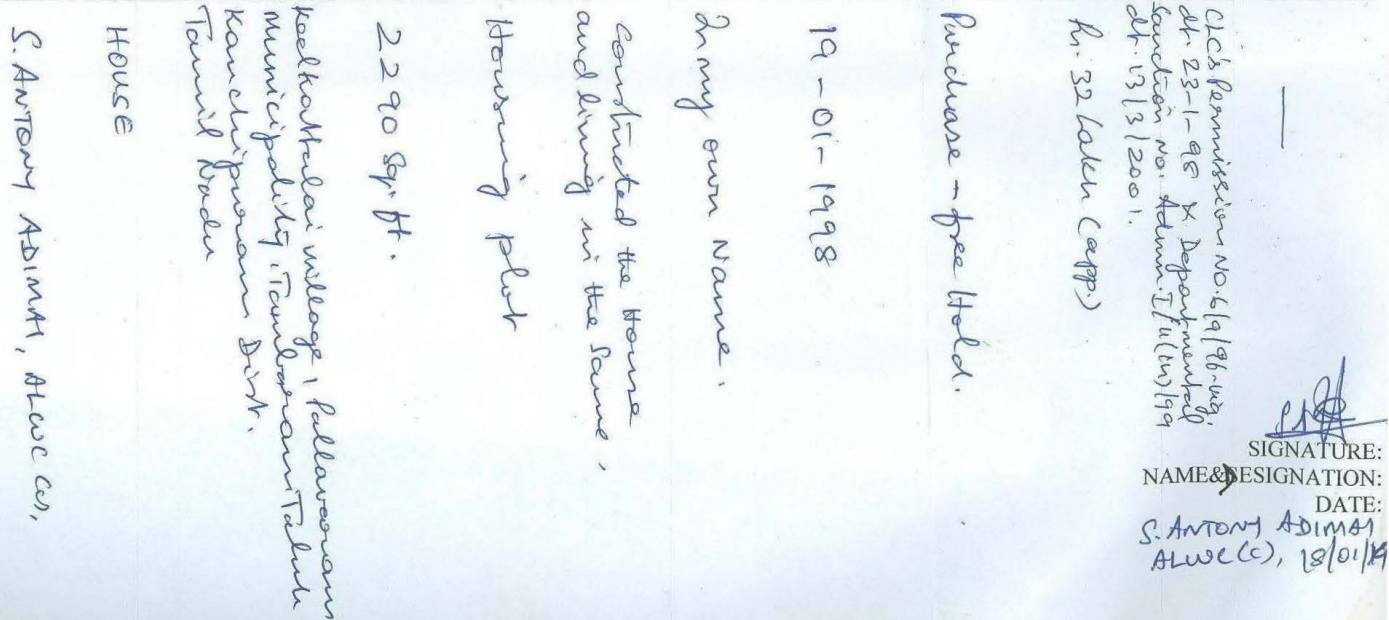 S. ANTONY ADIMAI, ALWC (C),
HOUSE
Keelkattalai village, Pallavaram
Municipality, Tambaram Taluk
Kanchipuram Dist.
Tamil Nadu
2290 Sq. ft.
Housing plot
Constructed the House
and living in the Same.
In my own Name.
19-01-1998
Purchase - free Hold.
Rs. 32 Lakh (app.)
CLC's Permission No. 6/9/96-vig.
dt. 23-1-98 & Departmental
Sanction No. Admn. I/
dt. 13/3/2001.
—
SIGNATURE:
NAME&DESIGNATION:
DATE:
S. ANTONY ADIMAI
ALWC (C), 18/01/